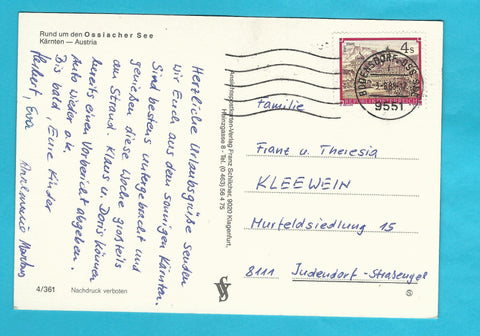 Rund um den Ossiacher See
Kärnten — Austria
Herzliche Urlaubsgrüße senden
wir Euch aus dem sonnigen Kärnten.
Sind bestens untergebracht und
genießen diese Woche großteils
am Strand. Klaus u. Doris können
bereits einen Vorbericht abgeben.
Auto Weber ok.
Bis bald, Eure Kinder
Herbert, Eva
4/361 Nachdruck verboten
Ansichtspostkarten-Verlag Franz Schilcher, 9020 Klagenfurt,
Henzgasse 8 - Tel. (0 463) 56 4 75
4 S
REPUBLIK ÖSTERREICH
BODENSDORF
9551
Familie
Franz u. Theresia
KLEEWEIN
Murfeldsiedlung 15
8111 Judendorf-Straßengel